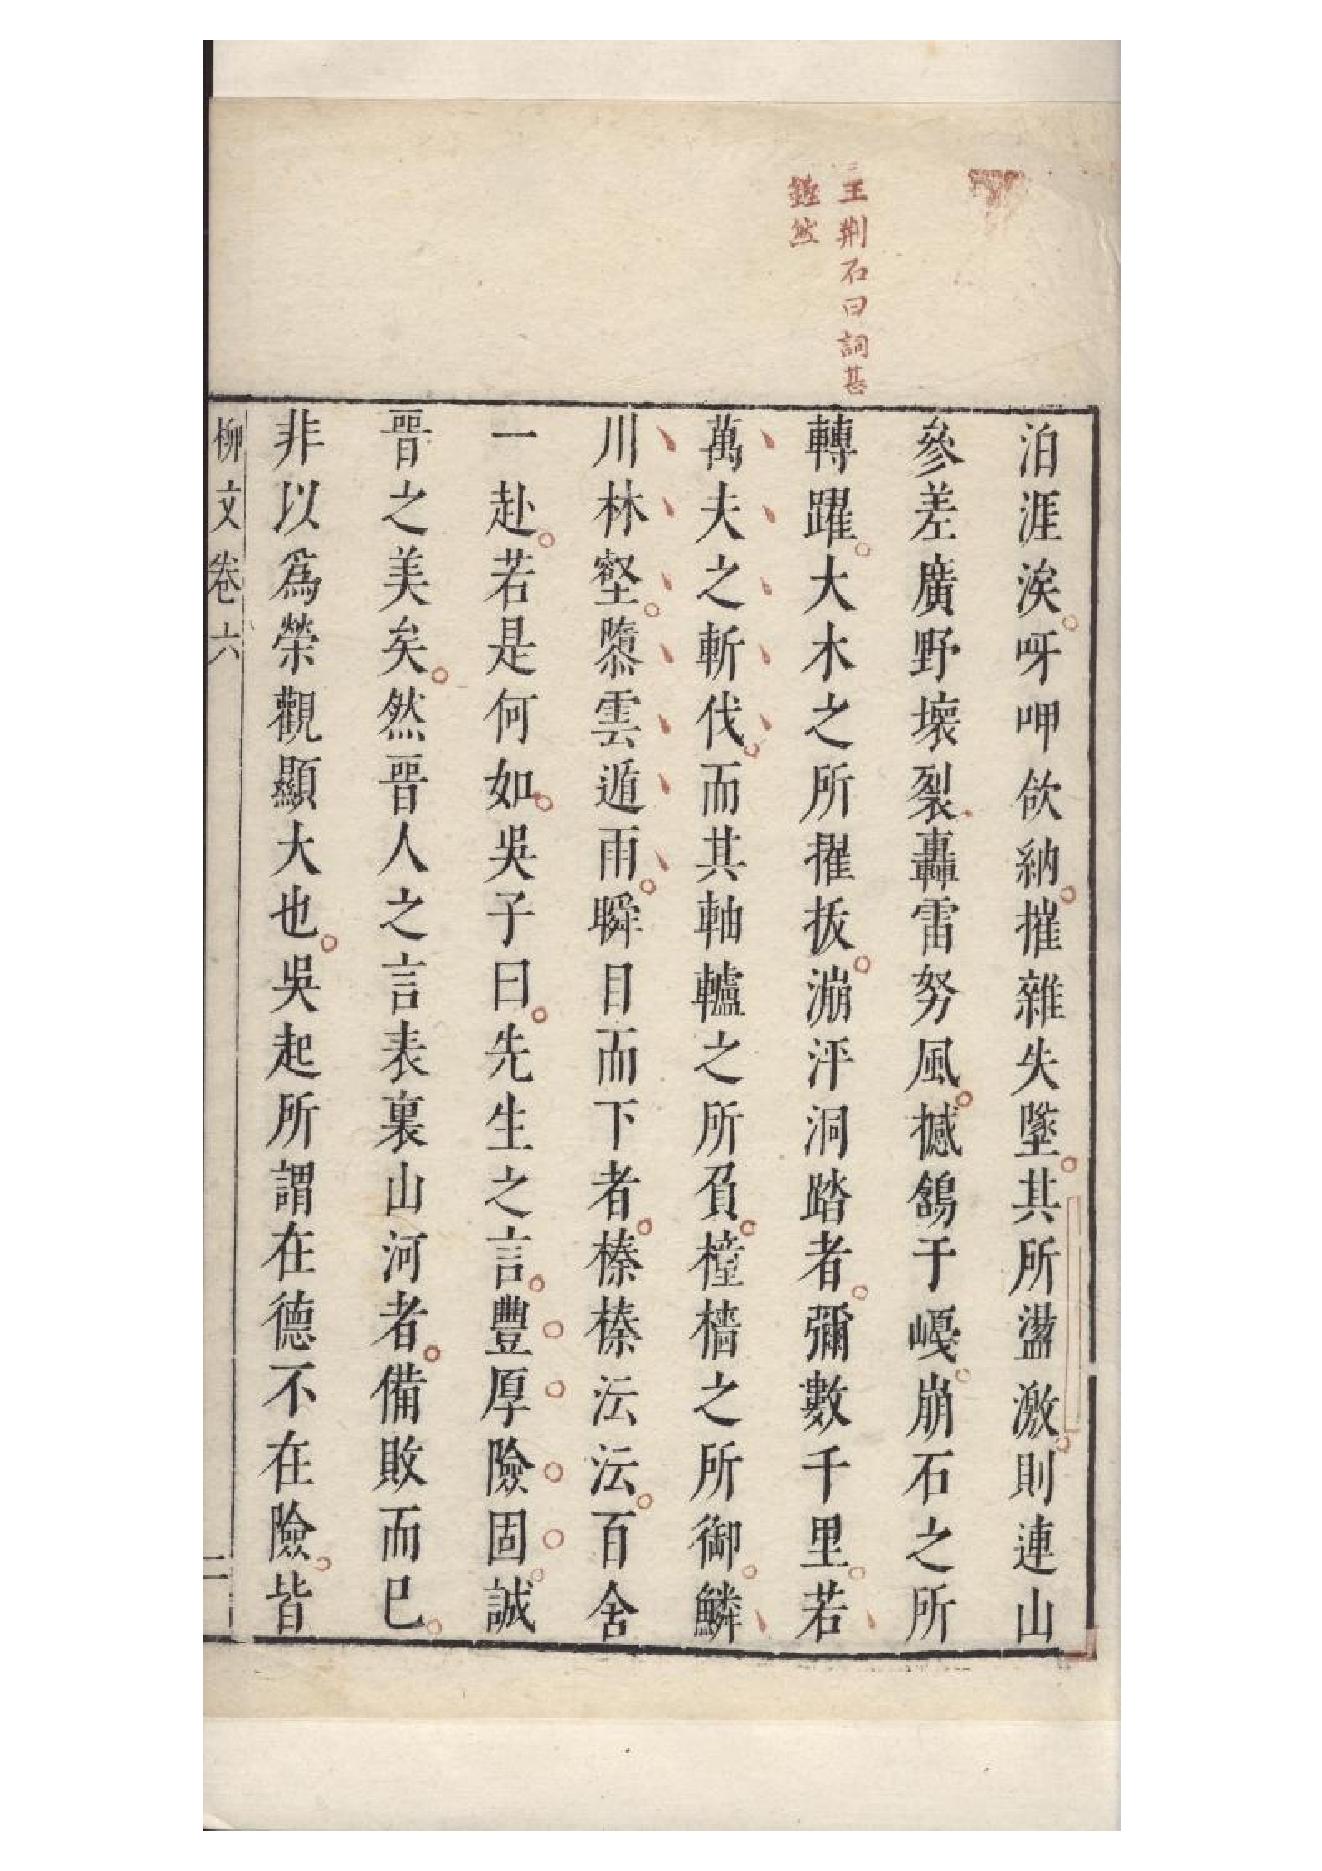 王荆石曰詞甚
鏗然
泊涯涘呀呷欱納摧雜失墜其所盪激則連山
參差廣野壞裂轟雷努風撼鶴于嵕崩石之所
轉躍大木之所擢拔漰泙洞踏者彌數千里若
萬夫之斬伐而其軸轤之所負橦檣之所御鱗
川林壑隳雲遁雨瞬目而下者榛榛沄沄百舍
一赴若是何如吳子曰先生之言豐厚險固誠
晉之美矣然晉人之言表裏山河者備敗而已
非以爲榮觀顯大也吳起所謂在德不在險皆
柳文卷六
二